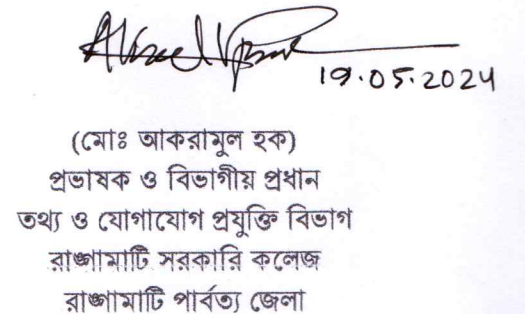 19.05.2024
(মোঃ আকরামুল হক)
প্রভাষক ও বিভাগীয় প্রধান
তথ্য ও যোগাযোগ প্রযুক্তি বিভাগ
রাঙ্গামাটি সরকারি কলেজ
রাঙ্গামাটি পার্বত্য জেলা